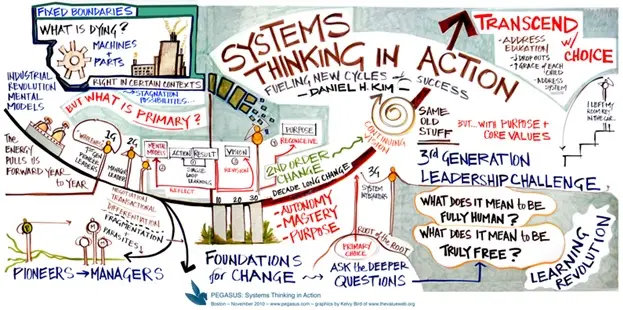 FIXED BOUNDARIES
WHAT IS DYING?
MACHINES
+
PARTS
RIGHT IN CERTAIN CONTEXTS
→ STAGNATION
POSSIBILITIES...
INDUSTRIAL
REVOLUTION
MENTAL
MODELS
BUT WHAT IS PRIMARY?
SYSTEMS
THINKING IN ACTION
FUELING NEW CYCLES of SUCCESS
- DANIEL H. KIM -
TRANSCEND
w/
CHOICE
- ADDRESS
EDUCATION
↓ DROP OUTS
↑ GRACE of EACH
CHILD
- ADDRESS
SYSTEM
I LEFT MY
ROOM KEY
IN THE CAR...
The
ENERGY
PULLS US
FORWARD YEAR
to YEAR
WHOLENESS
1G
PIONEER
LEADERS
2G
MANAGER
LEADERS
MENTAL
MODELS
ACTION
RESULT
SINGLE
LOOP
LEARNING
REFLECT
VISION
REVISION
PURPOSE
RECONCEIVE
2ND ORDER
CHANGE
DECADE LONG CHANGE
10 20 30
CONTINUING
VISION
SAME
OLD
STUFF
BUT... WITH PURPOSE +
CORE VALUES
3rd GENERATION
LEADERSHIP CHALLENGE
3G
SYSTEM
INTEGRATORS
NEGOTIATION
TRANSACTIONAL
DIFFERENTIATION
FRAGMENTATION
+
PARASITES
- AUTONOMY
- MASTERY
- PURPOSE
ROOT of the ROOT
PRIMARY
CHOICE
WHAT DOES IT MEAN to BE
FULLY HUMAN?
WHAT DOES IT MEAN to BE
TRULY FREE?
LEARNING
REVOLUTION
M
PIONEERS → MANAGERS
FOUNDATIONS
for CHANGE
ASK the DEEPER
QUESTIONS
PEGASUS: Systems Thinking in Action
Boston – November 2010 – www.pegasus.com – graphics by Kelvy Bird of www.thevalueweb.org